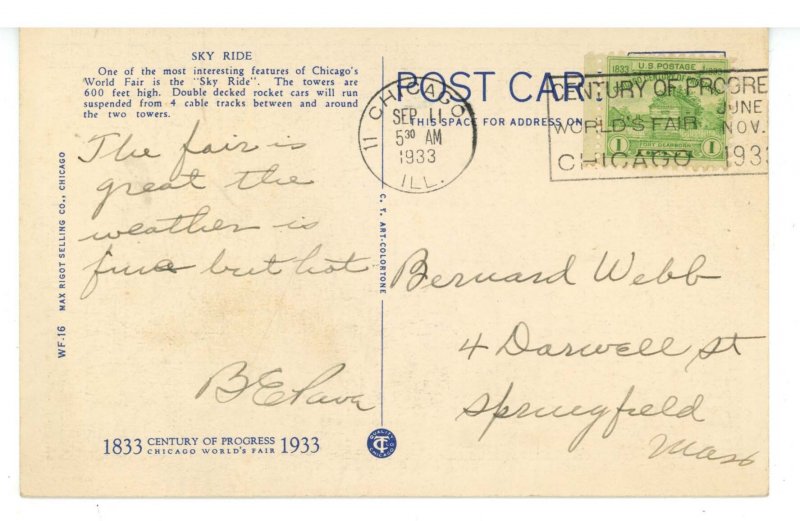 SKY RIDE
One of the most interesting features of Chicago's
World Fair is the "Sky Ride". The towers are
600 feet high. Double decked rocket cars will run
suspended from 4 cable tracks between and around
the two towers.
The fair is
great the
weather is
fine but hot
1833 CENTURY OF PROGRESS 1933
CHICAGO WORLD'S FAIR
WF-16 MAX RIGOT SELLING CO., CHICAGO
C. T. ART-COLORTONE
POST CAR
THIS SPACE FOR ADDRESS ON
CHICAGO
11
SEP 11
5 30 AM
1933
ILL.
U.S. POSTAGE
1833 1933
FORT DEARBORN
1 1
CENTURY OF PROGRE
JUNE
WORLD'S FAIR NOV.
CHICAGO 1933
Bernard Webb
4 Darwell St
Springfield
Mass